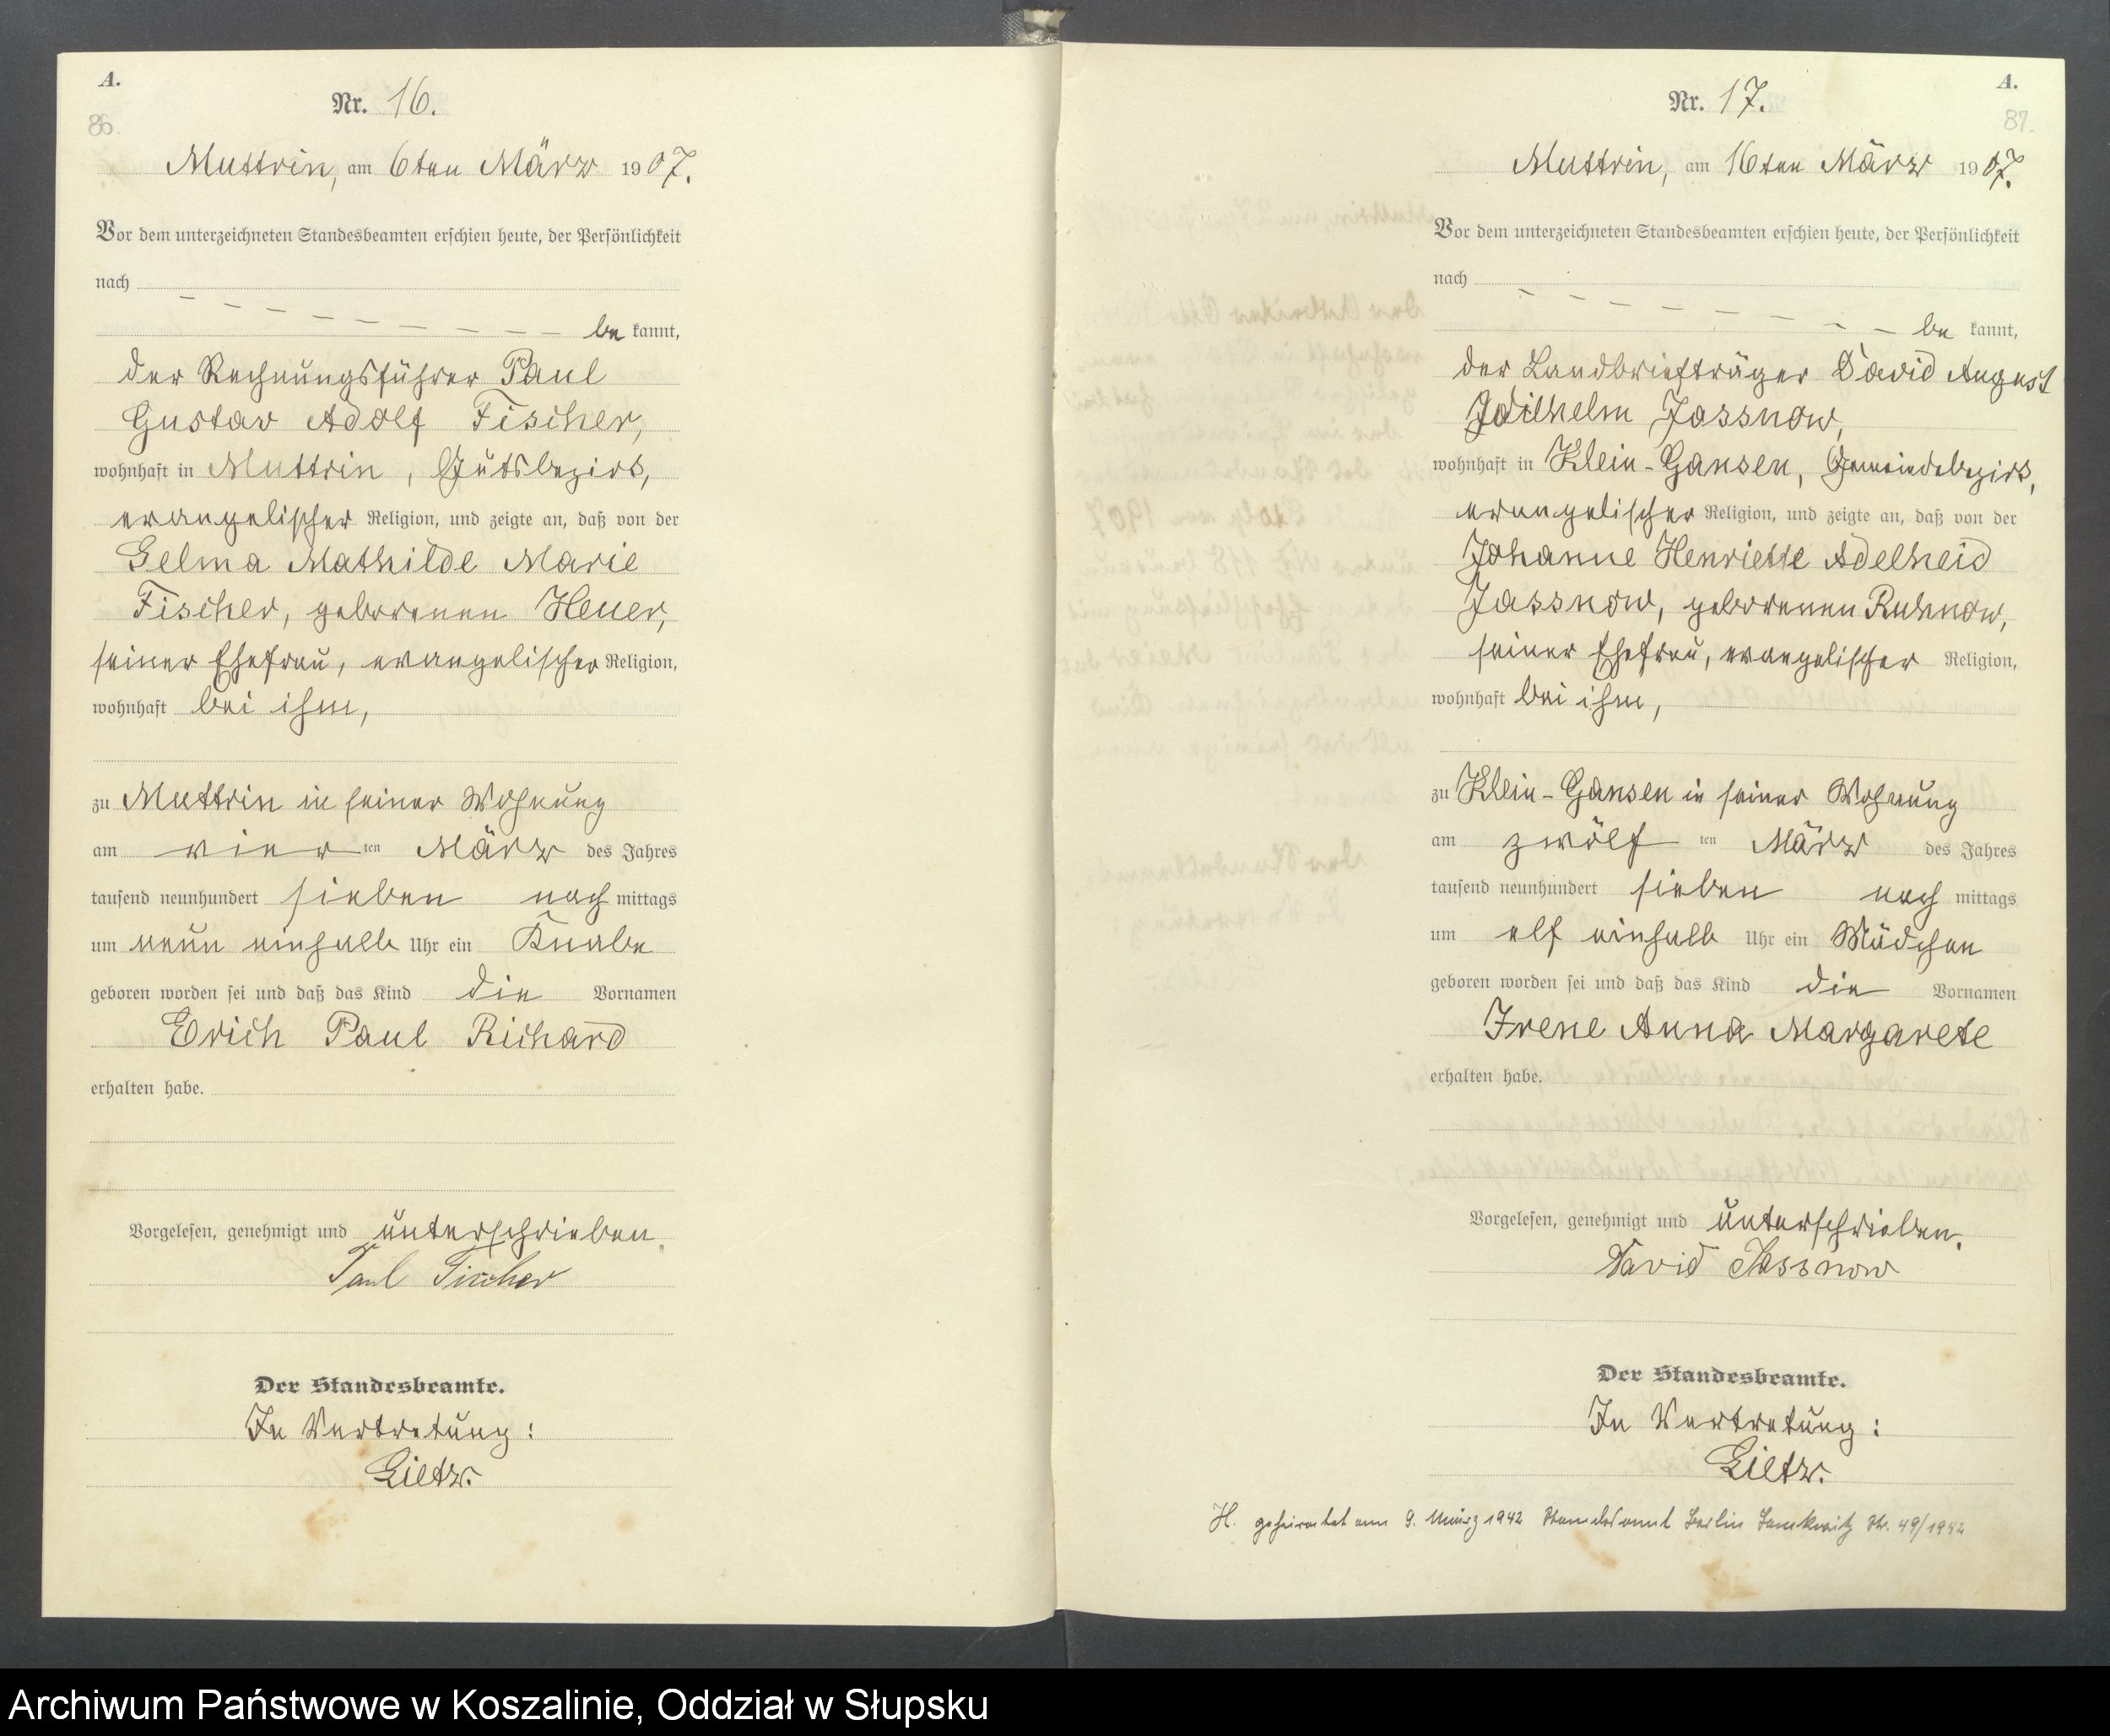 A.
Nr. 16.
86.
Muttrin, am 6ten März 1907.
Vor dem unterzeichneten Standesbeamten erschien heute, der Persönlichkeit
nach
be kannt,
der Rechnungsführer Paul
Gustav Adolf Fischer,
wohnhaft in Muttrin, Gutsbezirk,
evangelischer Religion, und zeigte an, daß von der
Selma Mathilde Marie
Fischer, geborenen Heuer,
seiner Ehefrau, evangelischer Religion,
wohnhaft bei ihm,
zu Muttrin in seiner Wohnung
am vier ten März des Jahres
tausend neunhundert sieben nach mittags
um neun einhalb Uhr ein Knabe
geboren worden sei und daß das Kind die Vornamen
Erich Paul Richard
erhalten habe.
Vorgelesen, genehmigt und unterschrieben.
Paul Fischer
Der Standesbeamte.
In Vertretung:
Lietz.
A.
Nr. 17.
87.
Muttrin, am 16ten März 1907.
Vor dem unterzeichneten Standesbeamten erschien heute, der Persönlichkeit
nach
be kannt,
der Landbriefträger David August
Wilhelm Jassnow,
wohnhaft in Klein-Gansen, Gemeindebezirk,
evangelischer Religion, und zeigte an, daß von der
Johanne Henriette Adelheid
Jassnow, geborenen Ruhnow,
seiner Ehefrau, evangelischer Religion,
wohnhaft bei ihm,
zu Klein-Gansen in seiner Wohnung
am zwölf ten März des Jahres
tausend neunhundert sieben nach mittags
um elf einhalb Uhr ein Mädchen
geboren worden sei und daß das Kind die Vornamen
Irene Anna Margarete
erhalten habe.
Vorgelesen, genehmigt und unterschrieben.
David Jassnow
Der Standesbeamte.
In Vertretung:
Lietz.
H. geheiratet am 9. März 1942 Standesamt Berlin Lankwitz Nr. 49/1942
Archiwum Państwowe w Koszalinie, Oddział w Słupsku